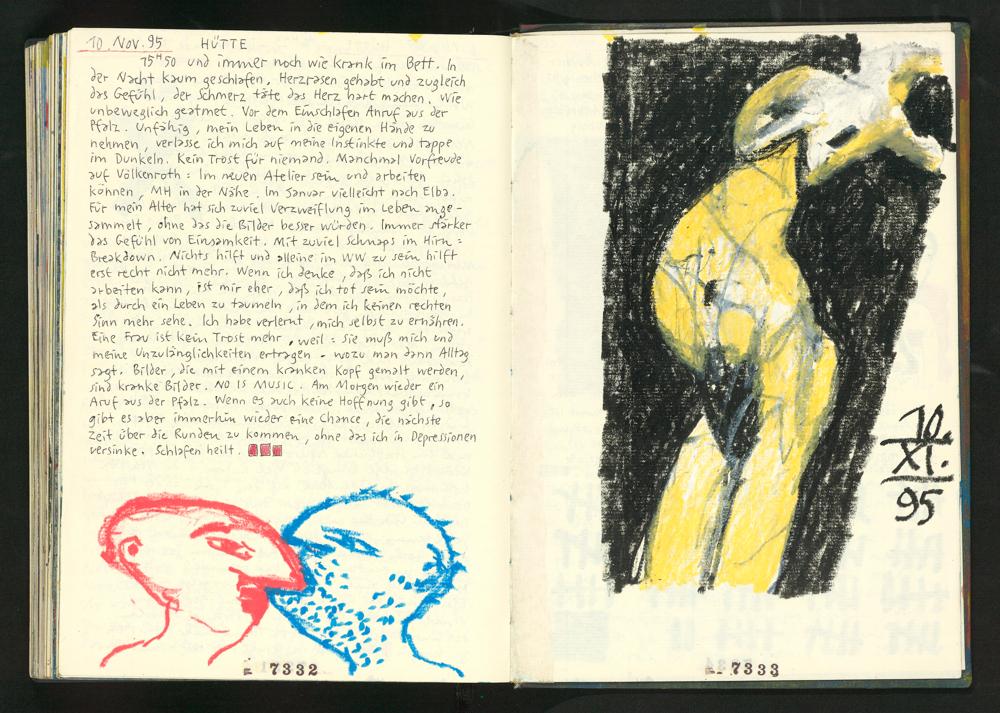 10. Nov. 95 HÜTTE
15H50 und immer noch wie krank im Bett. In
der Nacht kaum geschlafen, Herzrasen gehabt und zugleich
das Gefühl, der Schmerz täte das Herz hart machen. Wie
unbeweglich geatmet. Vor dem Einschlafen Anruf aus der
Pfalz. Unfähig, mein Leben in die eigenen Hände zu
nehmen, verlasse ich mich auf meine Instinkte und tappe
im Dunkeln. Kein Trost für niemand. Manchmal Vorfreude
auf Völkenroth: Im neuen Atelier sein und arbeiten
können, MH in der Nähe. Im Januar vielleicht nach Elba.
Für mein Alter hat sich zuviel Verzweiflung im Leben ange-
sammelt, ohne das die Bilder besser würden. Immer stärker
das Gefühl von Einsamkeit. Mit zuviel Schnaps im Hirn:
Breakdown. Nichts hilft und alleine im WW zu sein hilft
erst recht nicht mehr. Wenn ich denke, daß ich nicht
arbeiten kann, ist mir eher, daß ich tot sein möchte,
als durch ein Leben zu taumeln, in dem ich keinen rechten
Sinn mehr sehe. Ich habe verlernt, mich selbst zu ernähren.
Eine Frau ist kein Trost mehr, weil: Sie muß mich und
meine Unzulänglichkeiten ertragen - wozu man dann Alltag
sagt. Bilder, die mit einem kranken Kopf gemalt werden,
sind kranke Bilder. NO IS MUSIC. Am Morgen wieder ein
Aruf aus der Pfalz. Wenn es auch keine Hoffnung gibt, so
gibt es aber immerhin wieder eine Chance, die nächste
Zeit über die Runden zu kommen, ohne das ich in Depressionen
versinke. Schlafen heilt.
7332
10.
XI.
95
7333